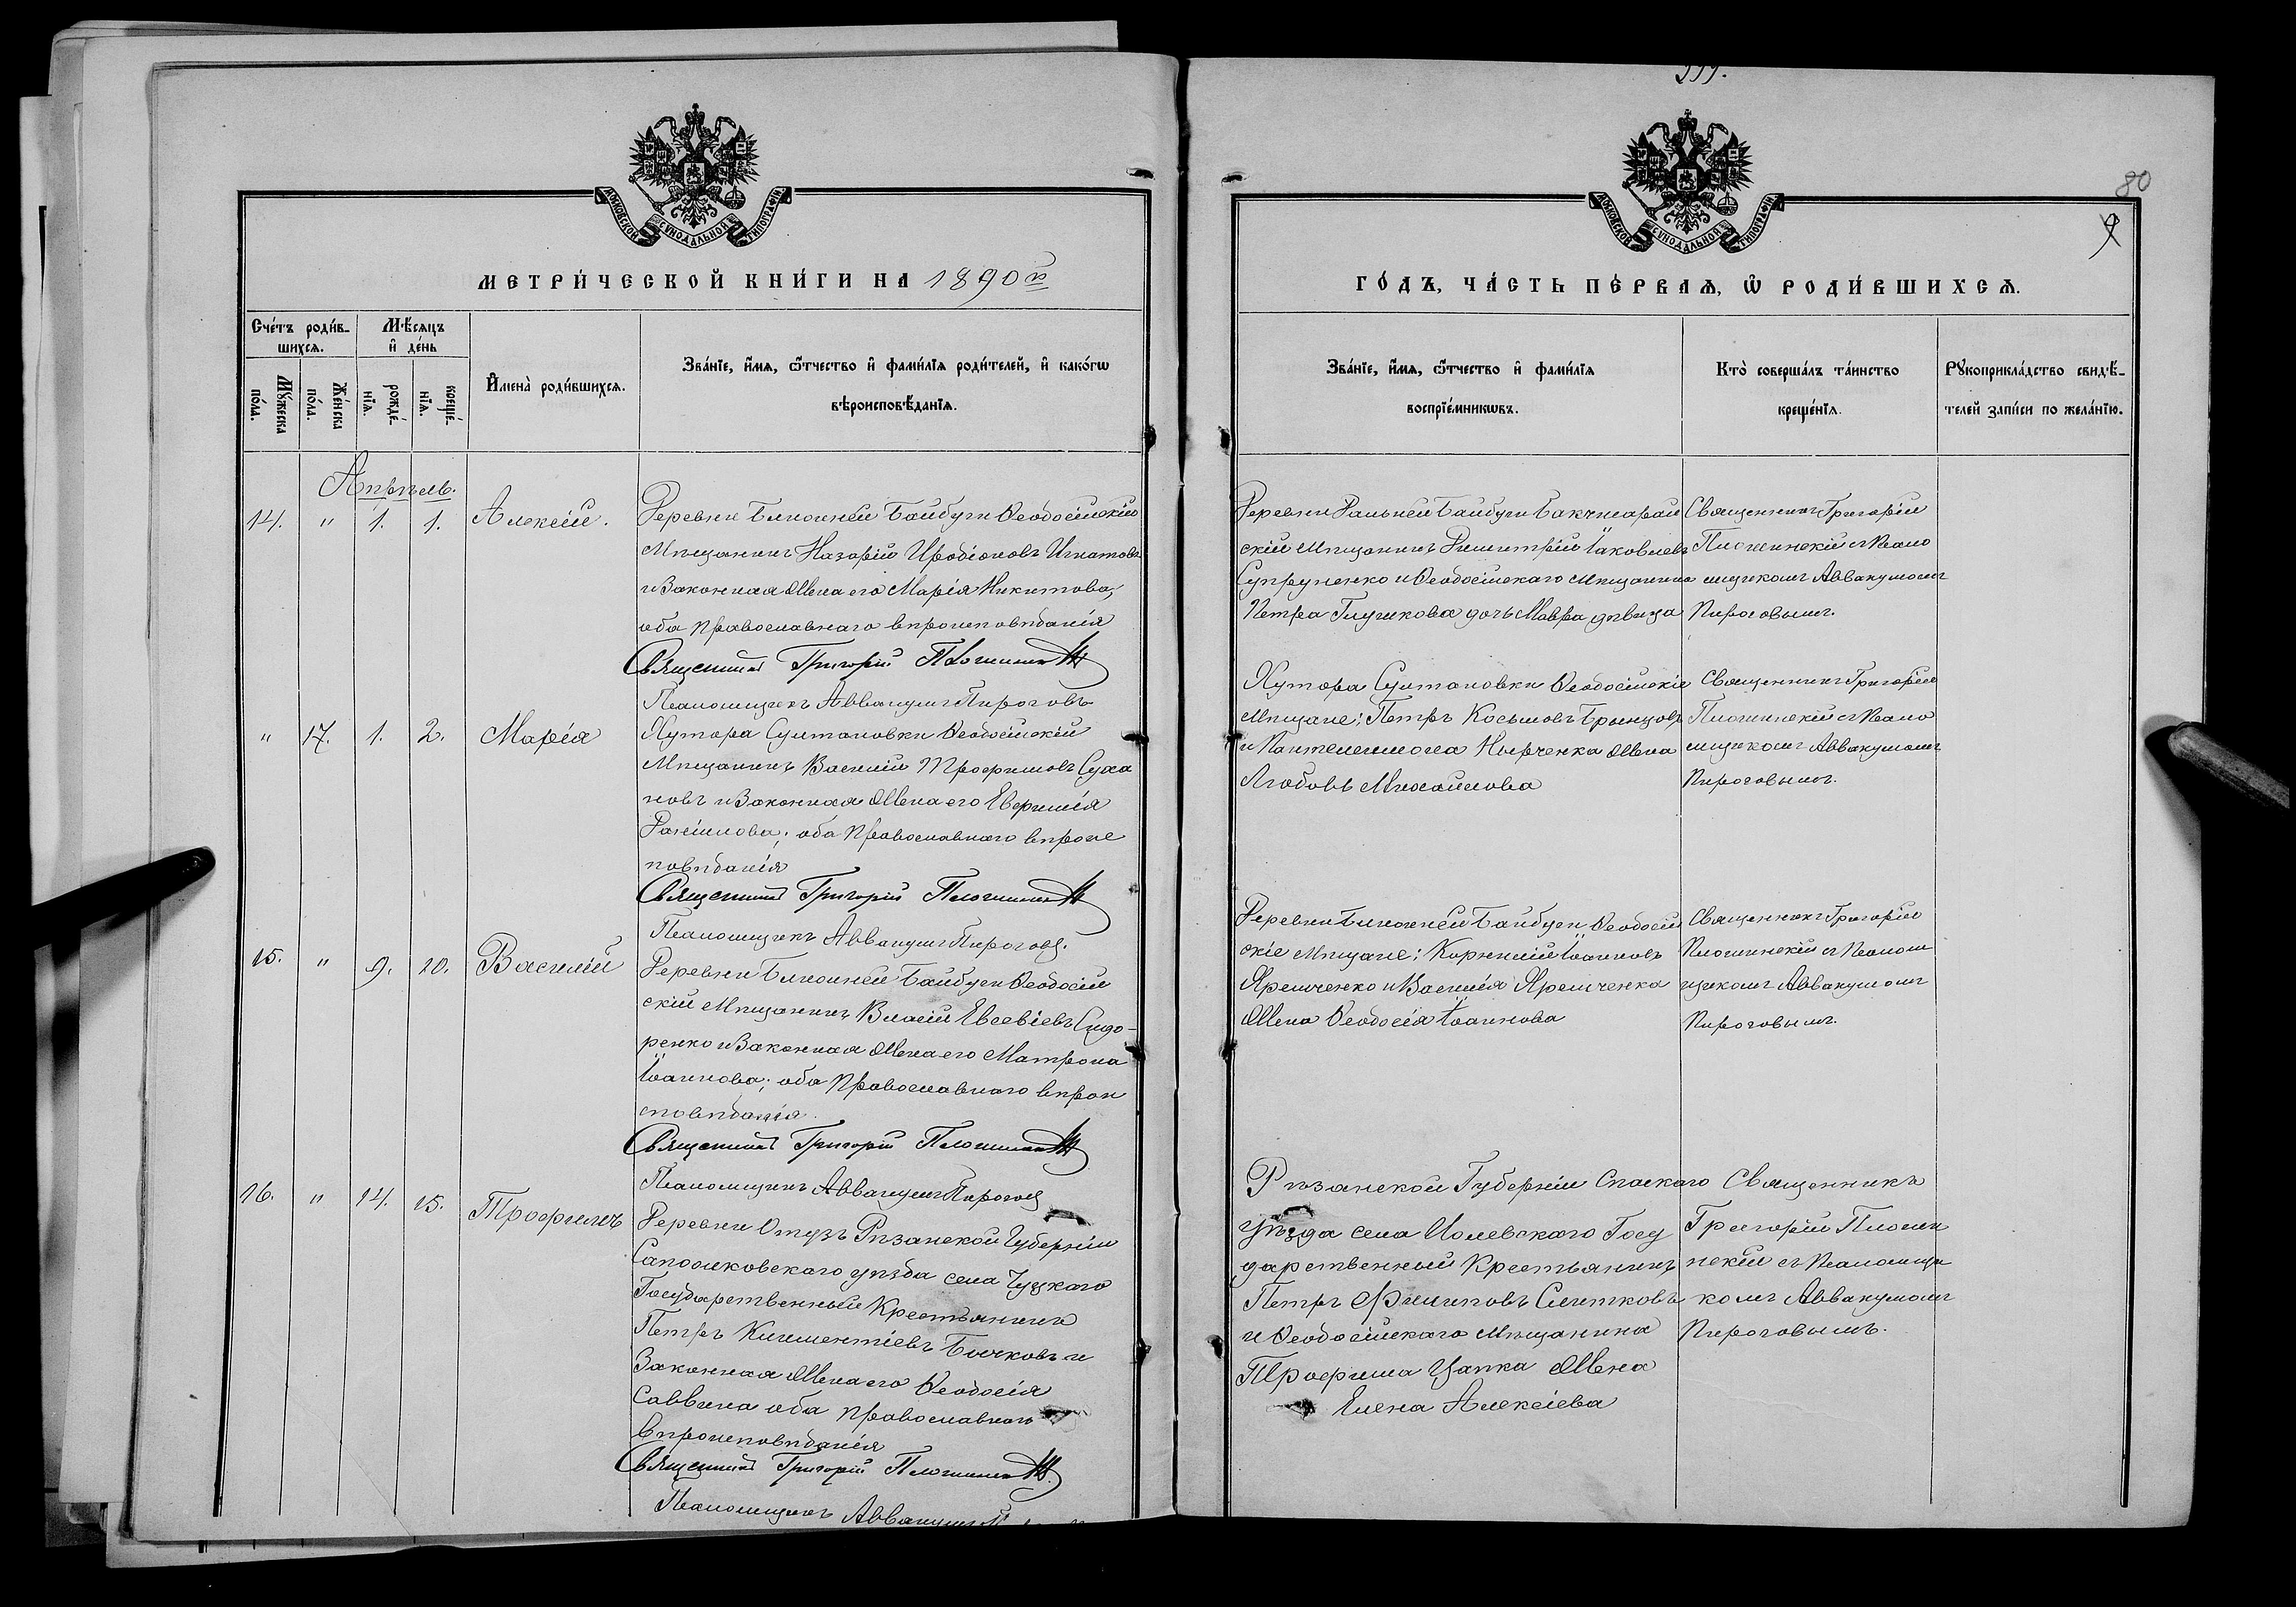 МОСКОВСКОЙ СѴНОДАЛЬНОЙ ТИПОГРАФІИ
МЕТРИ́ЧЕСКОЙ КНИ́ГИ НА 1890й
Сче́тъ роди́в-
шихсѧ.
Мꙋ́жеска
по́ла.
Же́нска
по́ла.
Мѣ́сѧцъ
и҆ де́нь
рожде́-
нїѧ.
креще́-
нїѧ.
И҆мена̀ роди́вшихсѧ.
Зва́нїе, и҆́мѧ, ѻ҆́тчество и҆ фами́лїѧ роди́телей, и҆ како́гѡ
вѣроисповѣ́данїѧ.
Апрѣль.
14. " 1. 1. Алексій.
Деревни Ближней Байбуги Ѳеодосійскій
Мѣщанинъ Назарій Иродіоновъ Игнатовъ
и Законная Жена его Марія Никитова,
оба Православнаго вѣроисповѣданія
Священникъ Григорій
Псаломщикъ Аввакумъ Пироговъ
" 17. 1. 2. Марія
Хутора Султановки Ѳеодосійскій
Мѣщанинъ Василій Трофимовъ Суха
новъ и Законная Жена его Евфимія
Даніилова; оба Православнаго вѣроис
повѣданія
Священникъ Григорій
Псаломщикъ Аввакумъ Пироговъ.
15. " 9. 10. Василій
Деревни Ближней Байбуги Ѳеодосій
скій Мѣщанинъ Власій Евсевіевъ Сидо-
ренко и Законная Жена его Матрона
Іоаннова; оба Православнаго вѣрои
сповѣданія.
Священникъ Григорій
Псаломщикъ Аввакумъ Пироговъ
16. " 14. 15. Трофимъ
Деревни Отузъ Рязанской Губерніи
Сапожковскаго уѣзда села
Государственный Крестьянинъ
Петръ Климентіевъ Бычковъ и
Законная Жена его Ѳеодосія
Саввина оба Православнаго
вѣроисповѣданія
Священникъ Григорій
Псаломщикъ Аввакумъ
80
МОСКОВСКОЙ СѴНОДАЛЬНОЙ ТИПОГРАФІИ
ГО́ДЪ, ЧА́СТЬ ПЕ́РВАѦ, Ѡ҆ РОДИ́ВШИХСѦ.
Зва́нїе, и҆́мѧ, ѻ҆́тчество и҆ фами́лїѧ
воспрїе́мникѡвъ.
Кто̀ соверша́лъ та́инство
креще́нїѧ.
Рꙋкоприкла́дство свидѣ́-
телей за́писи по жела́нїю.
Деревни Дальней Байбуги Бахчисарай
скій Мѣщанинъ Димитрій Іаковлевъ
Супруненко и Ѳеодосійскаго Мѣщанина
Петра Глушкова дочь Мавра дѣвица
Священникъ Григорій
съ Псало
мщикомъ Аввакумомъ
Пироговымъ.
Хутора Султановки Ѳеодосійскіе
Мѣщане; Петръ Косьмовъ Брынцовъ
и Пантелеимона Жена
Любовь Михайлова
Священникъ Григорій
съ Псало
мщикомъ Аввакумомъ
Пироговымъ.
Деревни Ближней Байбуги Ѳеодосій
скіе Мѣщане; Корнилій Іоанновъ
Яремченко и Василія Яремченка
Жена Ѳеодосія Іоаннова
Священникъ Григорій
съ Псалом
щикомъ Аввакумомъ
Пироговымъ.
Рязанской Губерніи Спаскаго
уѣзда села Госу
дарственный Крестьянинъ
Петръ Филиповъ
и Ѳеодосійскаго Мѣщанина
Трофима Цапка Жена
Елена Алексіева
Священникъ
Григорій
съ Псаломщи
комъ Аввакумомъ
Пироговымъ.